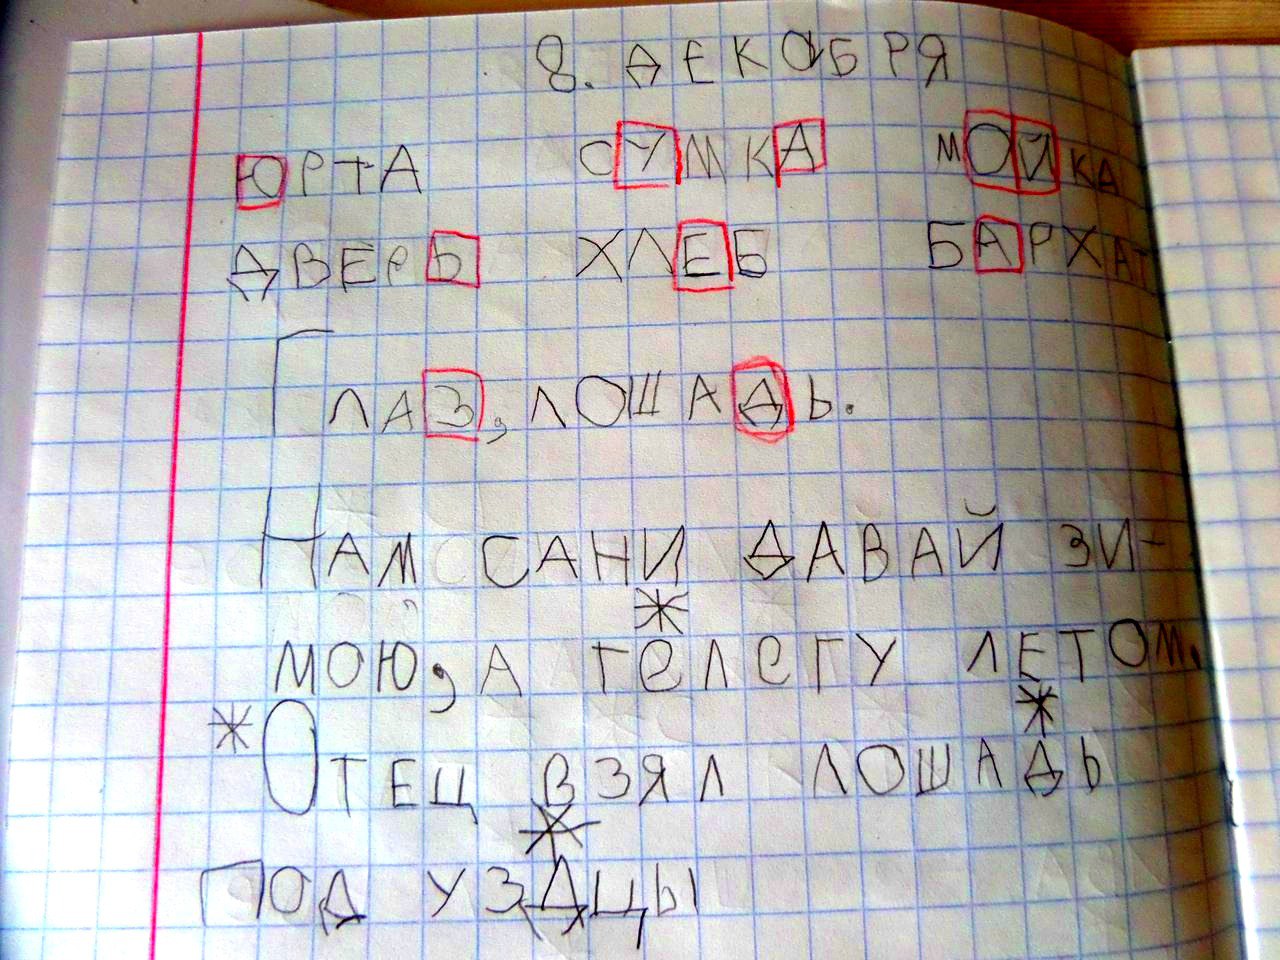 8. ДЕКОБРЯ
ЮРТА СУМКА МОЙКА
ДВЕРЬ ХЛЕБ БАРХАТ
ГЛАЗ, ЛОШАДЬ.
НАМ САНИ ДАВАЙ ЗИ-
МОЮ, А ТЕЛЕГУ ЛЕТОМ.
*ОТЕЦ ВЗЯЛ ЛОШАДЬ
ПОД УЗДЦЫ